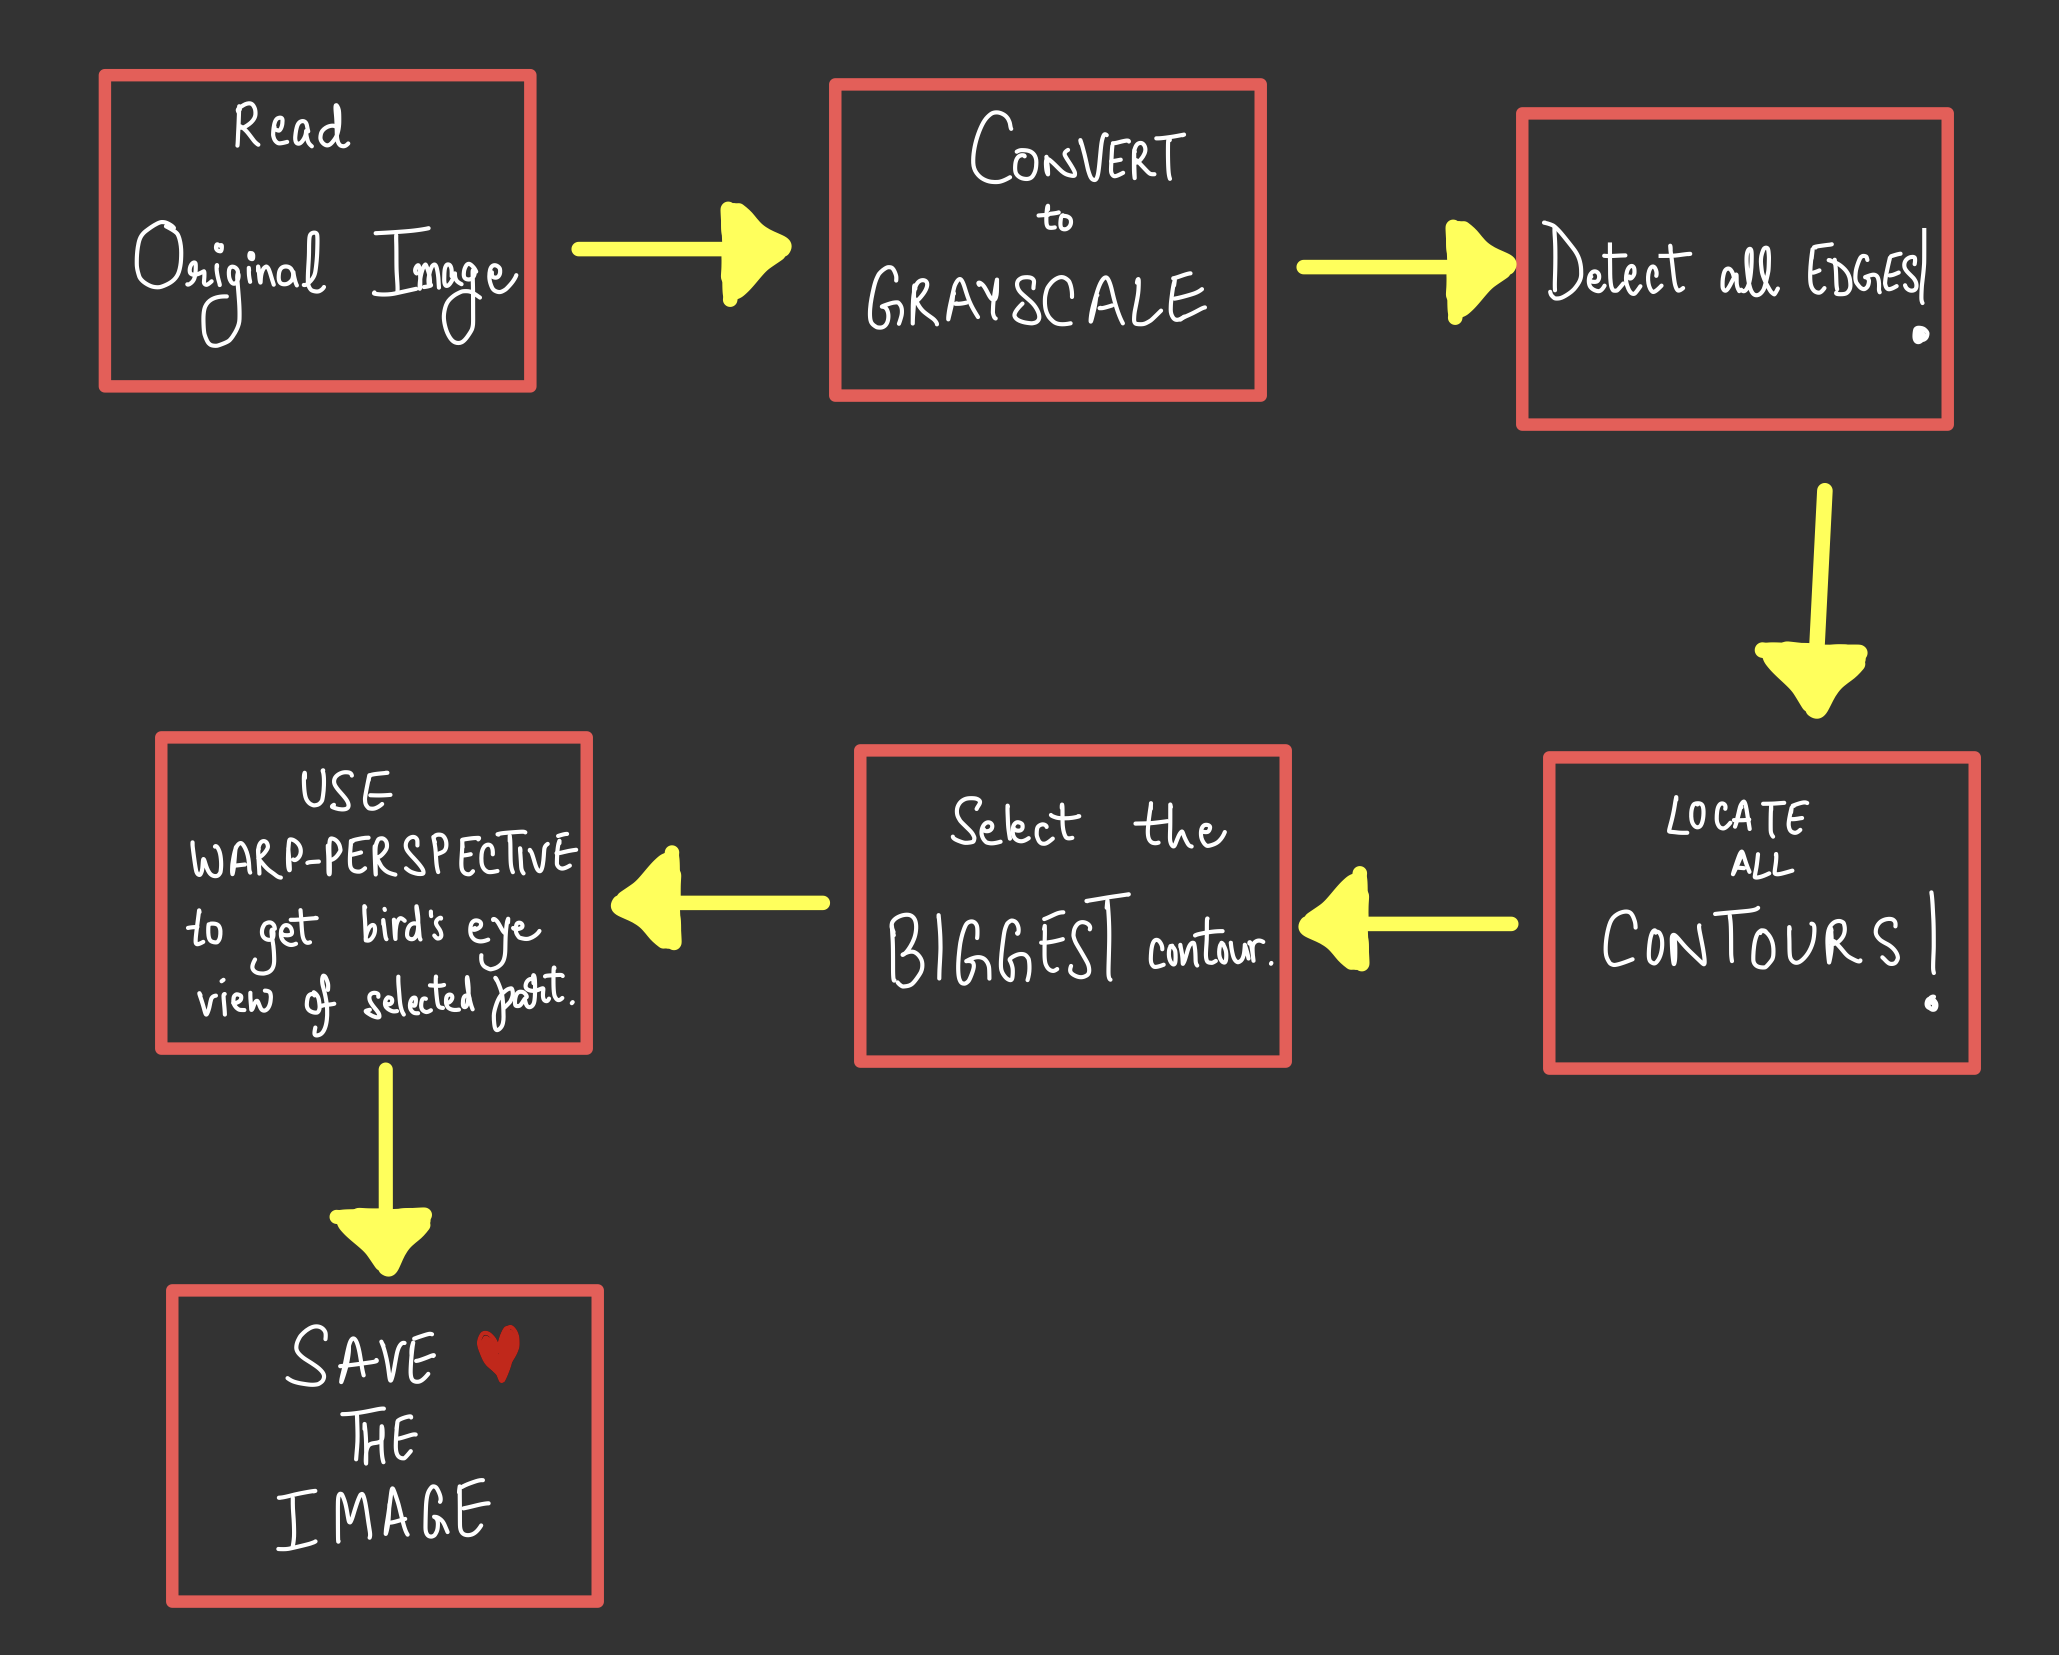 Read
Original Image
CONVERT
to
GRAYSCALE
Detect all EDGES!
LOCATE
ALL
CONTOURS!
Select the
BIGGEST contour.
USE
WARP-PERSPECTIVE
to get bird's eye
view of selected part.
SAVE
THE
IMAGE